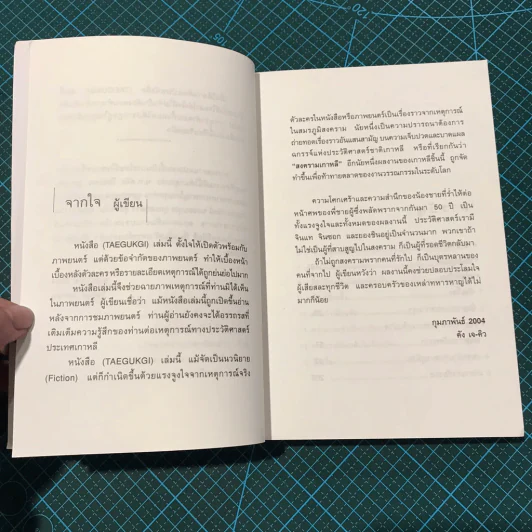 จากใจ ผู้เขียน
หนังสือ (TAEGUKGI) เล่มนี้ ตั้งใจให้เปิดตัวพร้อมกับ
ภาพยนตร์ แต่ด้วยข้อจำกัดของภาพยนตร์ ทำให้เบื้องหน้า
เบื้องหลังตัวละคร หรือรายละเอียดเหตุการณ์ได้ถูกย่นย่อไปมาก
หนังสือเล่มนี้จึงช่วยฉายภาพเหตุการณ์ที่ท่านมิได้เห็น
ในภาพยนตร์ ผู้เขียนเชื่อว่า แม้หนังสือเล่มนี้ถูกเปิดขึ้นอ่าน
หลังจากการชมภาพยนตร์ ท่านผู้อ่านยังคงจะได้อรรถรสที่
เติมเต็มความรู้สึกของท่านต่อเหตุการณ์ทางประวัติศาสตร์
ประเทศเกาหลี
หนังสือ (TAEGUKGI) เล่มนี้ แม้จัดเป็นนวนิยาย
(Fiction) แต่ก็กำเนิดขึ้นด้วยแรงจูงใจจากเหตุการณ์จริง
ตัวละครในหนังสือหรือภาพยนตร์เป็นเรื่องราวจากเหตุการณ์
ในสมรภูมิสงคราม นัยหนึ่งเป็นความปรารถนาต้องการ
ถ่ายทอดเรื่องราวอันแสนสามัญ บนความเจ็บปวดและบาดแผล
ฉกรรจ์แห่งประวัติศาสตร์ชาติเกาหลี หรือที่เรียกกันว่า
"สงครามเกาหลี" อีกนัยหนึ่งผลงานของเกาหลีชิ้นนี้ ถูกจัด
ทำขึ้นเพื่อท้าทายตลาดของงานวรรณกรรมในระดับโลก
ความโศกเศร้าและความสำนึกของน้องชายที่ร่ำไห้ต่อ
หน้าศพของพี่ชายผู้ซึ่งพลัดพรากจากกันมา 50 ปี เป็น
ทั้งแรงจูงใจและทั้งหมดของผลงานนี้ ประวัติศาสตร์เรามี
จินแท จินซอก และยองชินอยู่เป็นจำนวนมาก พวกเขาถ้า
ไม่ใช่เป็นผู้ที่สาบสูญไปในสงคราม ก็เป็นผู้ที่รอดชีวิตกลับมา
ถ้าไม่ถูกสงครามพรากคนที่รักไป ก็เป็นบุตรหลานของ
คนที่จากไป ผู้เขียนหวังว่า ผลงานนี้คงช่วยปลอบประโลมใจ
ผู้เสียสละทุกชีวิต และครอบครัวของเหล่าทหารหาญได้ไม่
มากก็น้อย
กุมภาพันธ์ 2004
คัง เจ-คิว